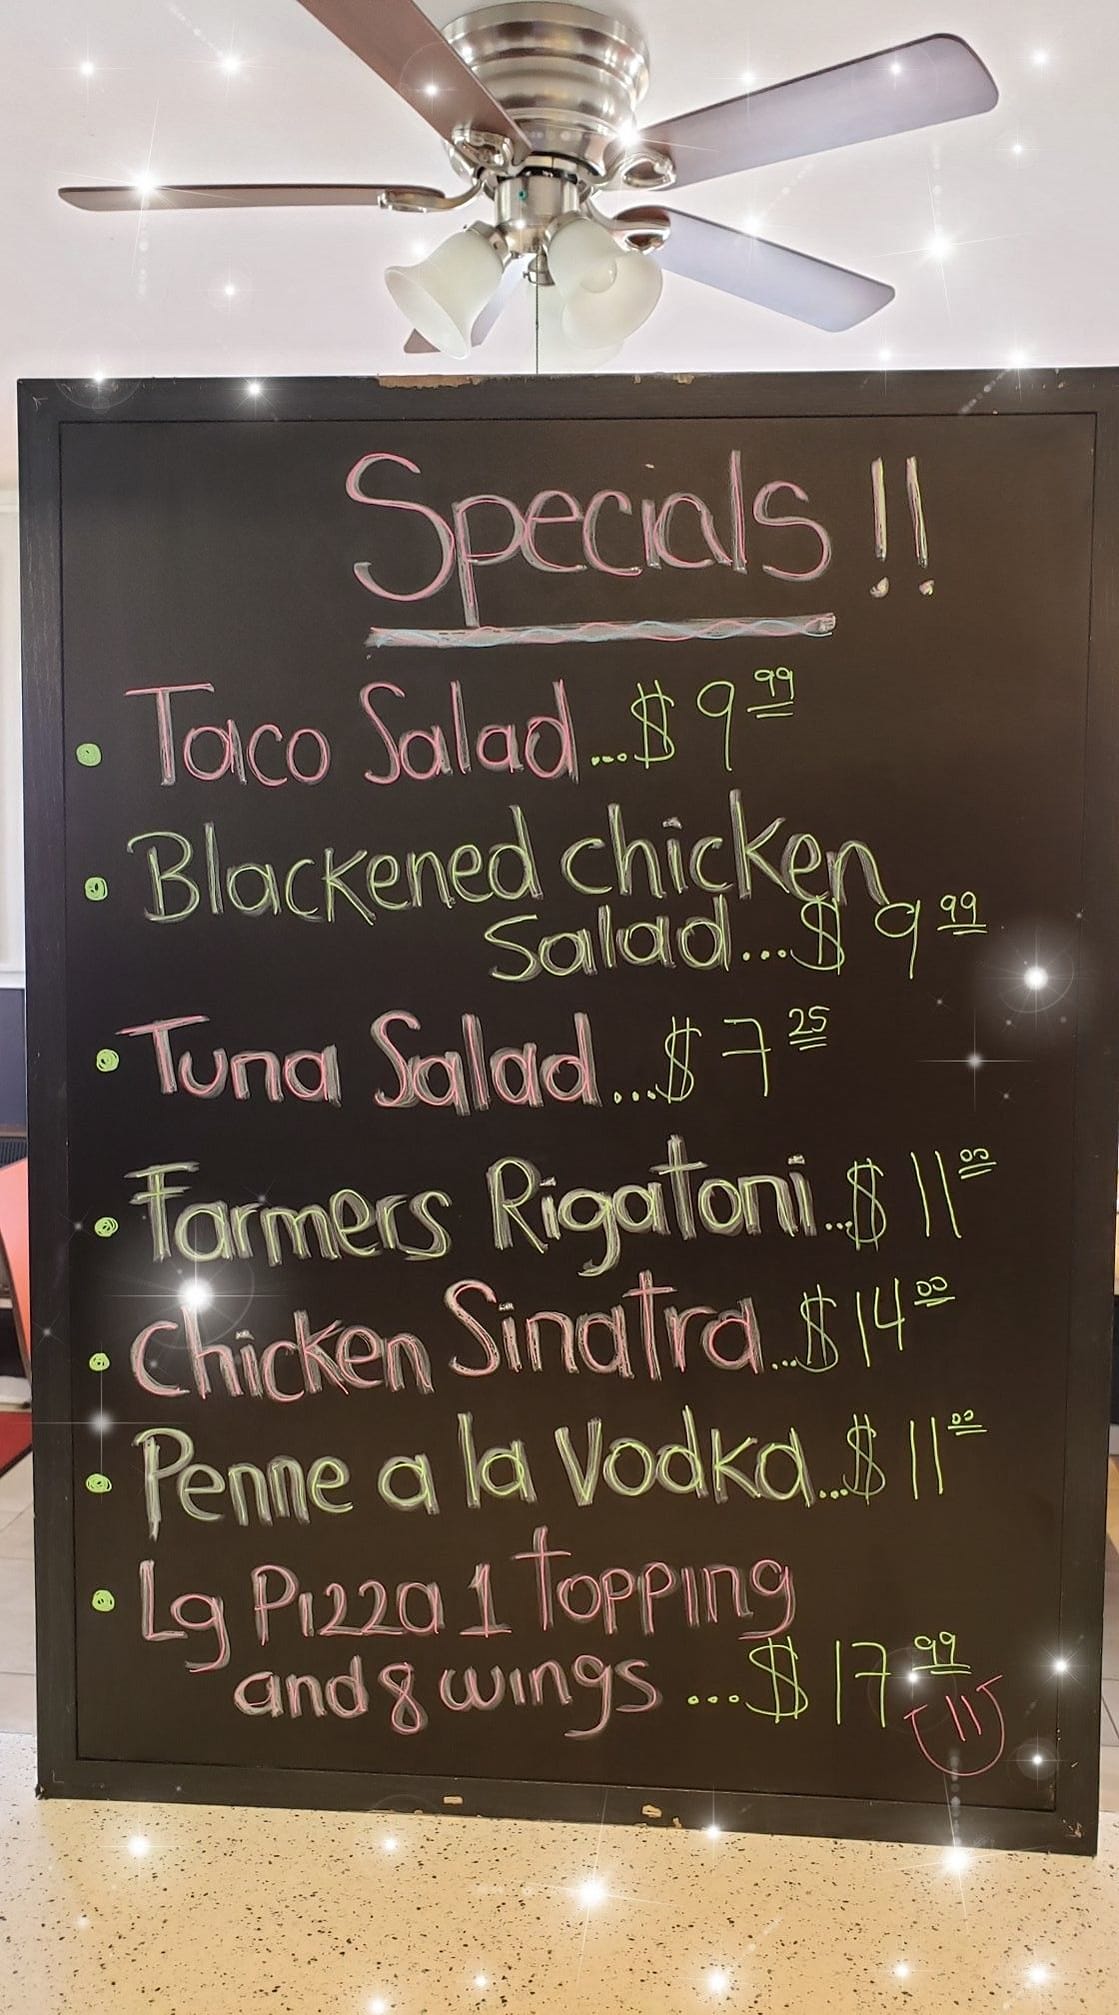 Specials !!
• Taco Salad...$ 9 99
• Blackened chicken
Salad...$ 9 99
• Tuna Salad...$ 7 25
• Farmers Rigatoni...$ 11 00
• Chicken Sinatra...$ 14 00
• Penne a la Vodka...$ 11 00
• Lg Pizza 1 Topping
and 8 wings ...$ 17 99